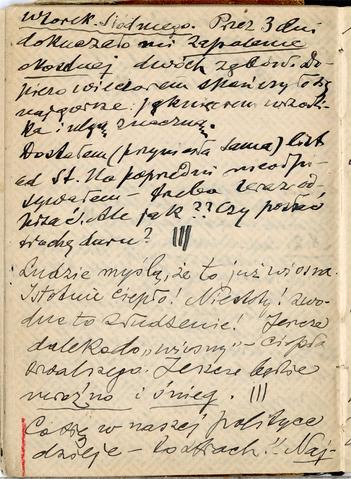 Wtorek. Siódmego. Przez 3 dni
dokuczało mi zapalenie
okostnej dwóch zębów. Do-
piero wieczorem skończyło się
najgorsze: pęknięciem wrzodzi-
ka i ulgą znaczną.
Dostałem (przyniosła sama) list
od St. Na poprzedni nieodpi-
sywałem – trzeba teraz od-
pisać. Ale jak?? Czy posłać
trochę daru?
Ludzie myślą, że to już wiosna.
Istotnie ciepło! Niestety! zwo-
dne to złudzenie! Jeszcze
daleko do „wiosny” – ciepła
trwalszego. Jeszcze będzie
mroźno i śnieg.
Co się w naszej polityce
dzieje – to strach!! Naj-